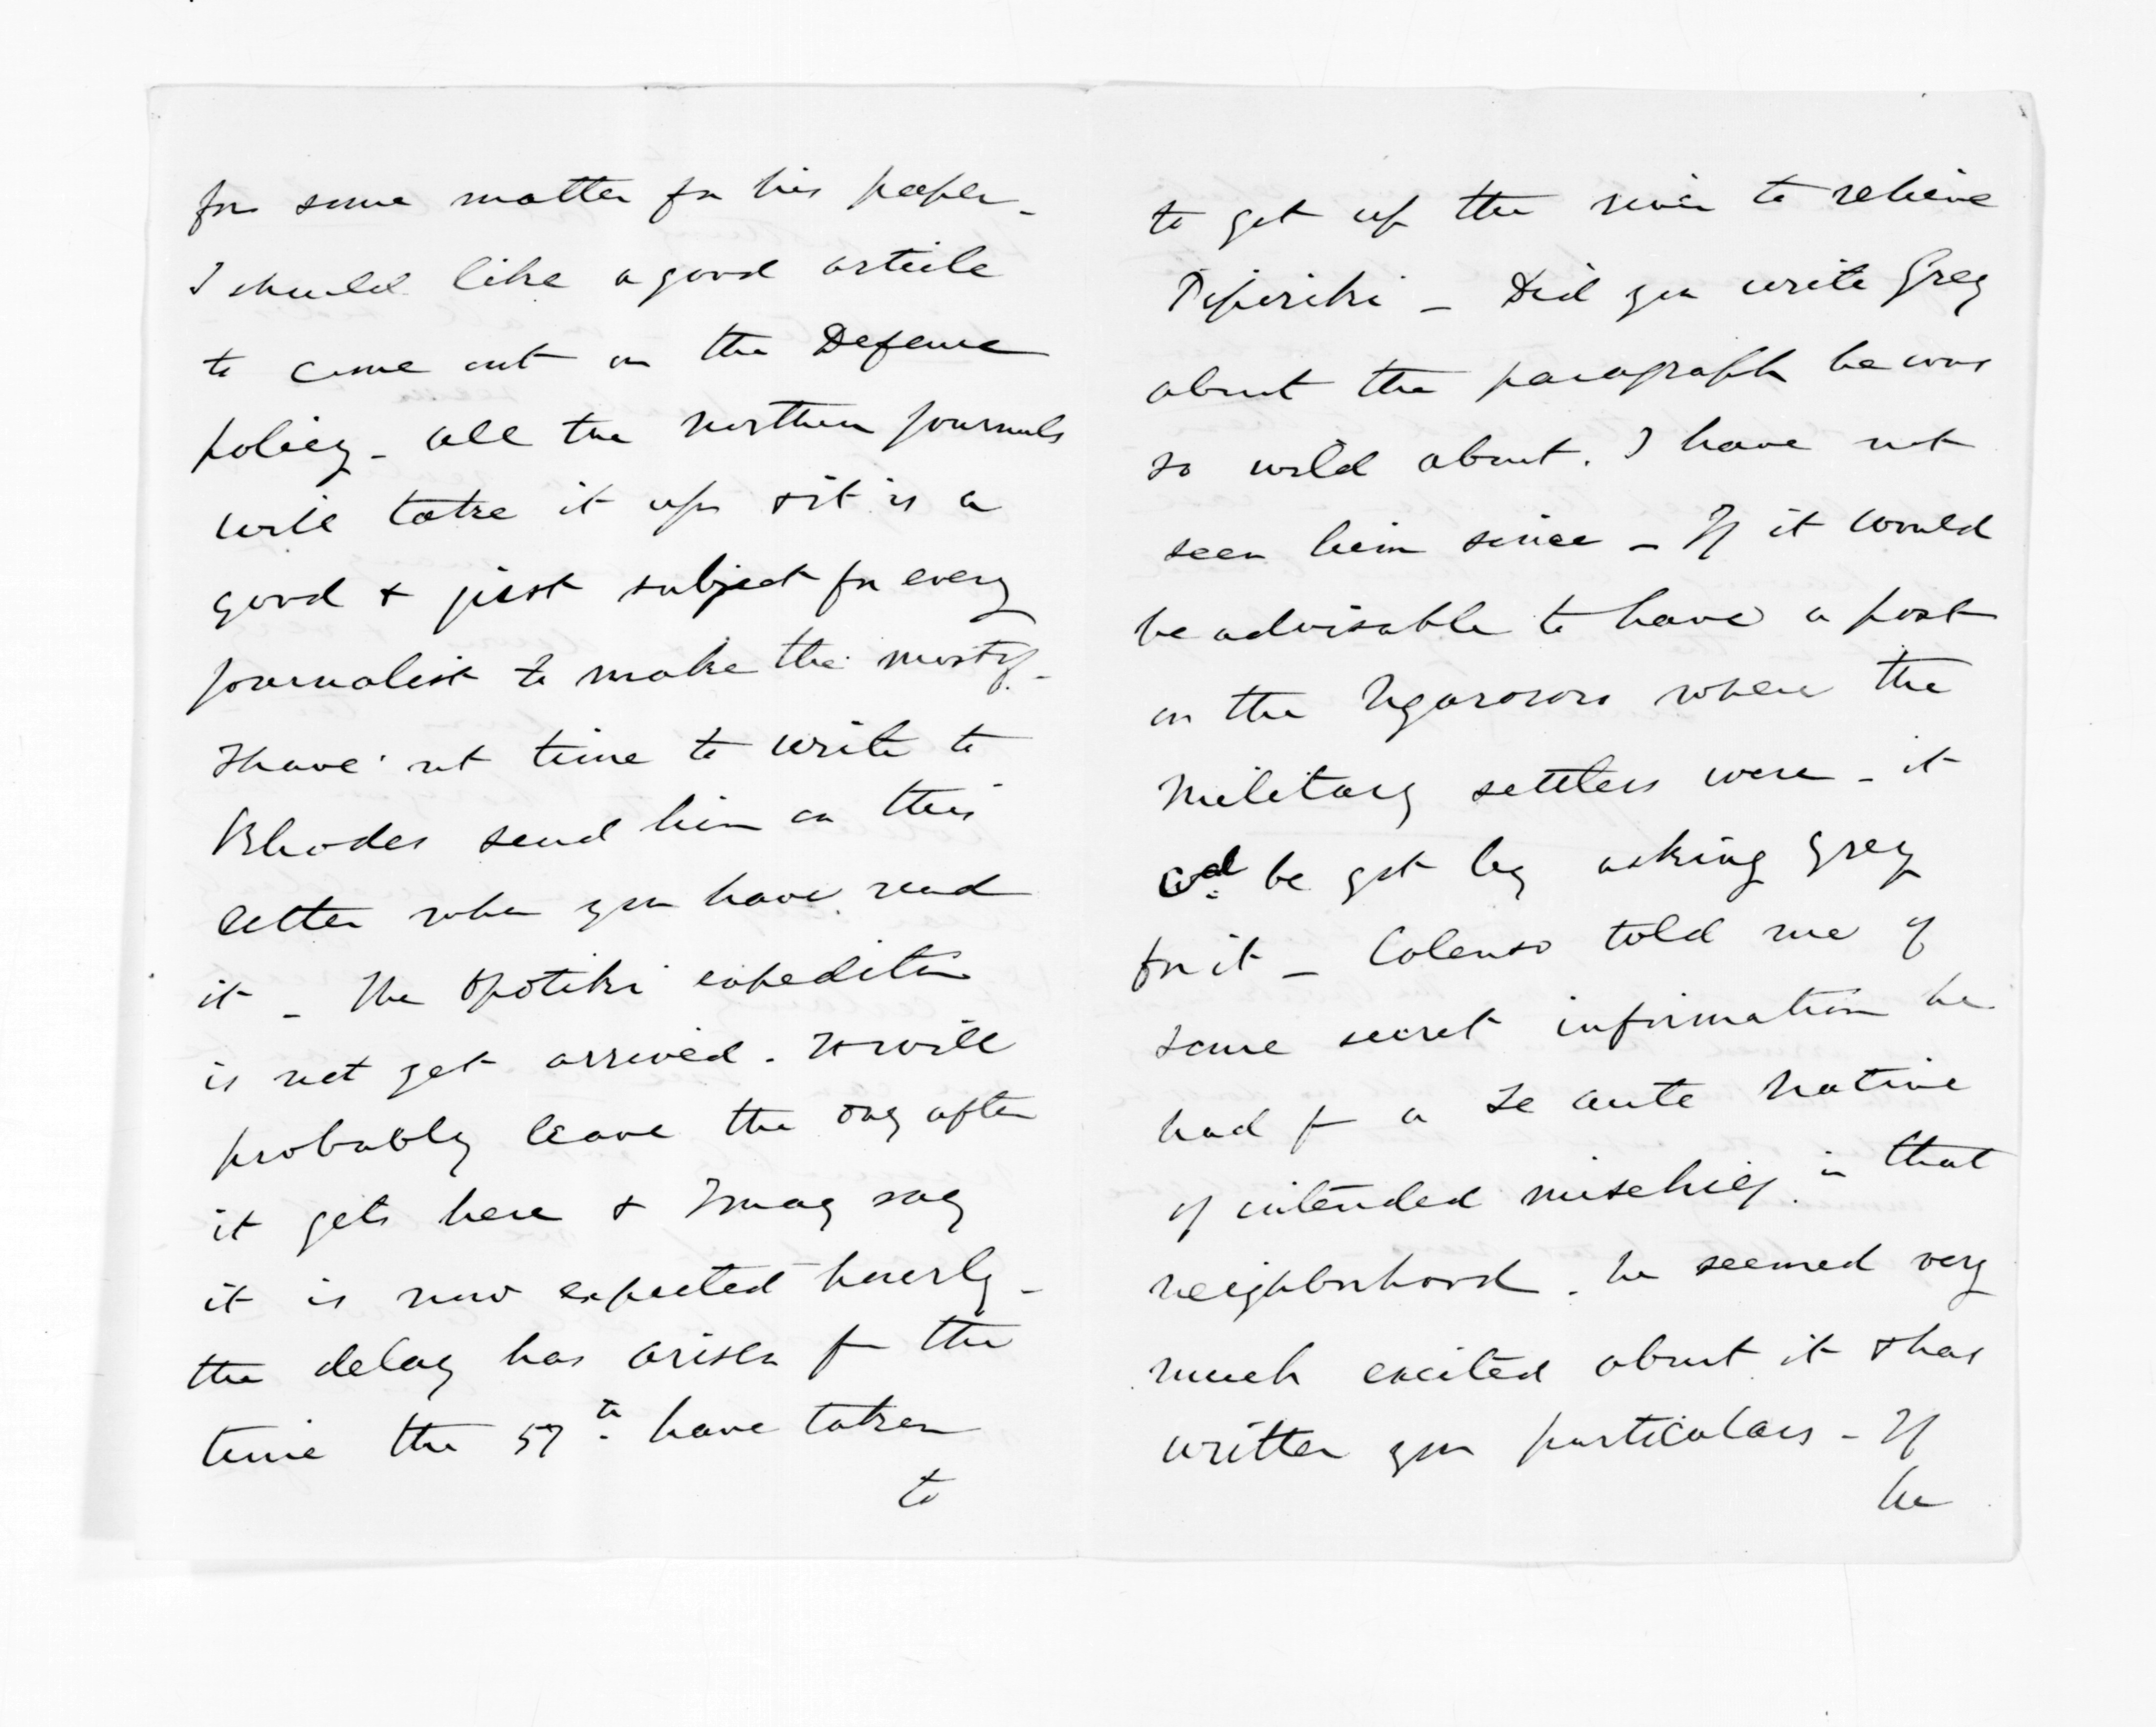 for some matter for his paper -
I should like a good article
to come out on the Defence
policy - all the northern journals
will take it up & it is a
good & just subject for every
journalist to make the most of. -
I have not time to write to
Rhodes send him on this
letter when you have read
it - The Opotiki expedition
is not yet arrived. It will
probably leave the day after
it gets here & I may say
it is now expected hourly -
the delay has arisen fm the
time the 57th have taken
to
to get up the river to relieve
Pipiriki - Did you write Grey
about the paragraph he was
so wild about. I have not
seen him since - If it would
be advisable to have a post
on the Ngaruroro where the
Military settlers were - it
wd be got by asking Grey
for it - Colenso told me of
some secret information he
had fm a Te Aute Native
of intended mischief in that
neighborhood. he seemed very
much excited about it & has
written you particulars - If
he